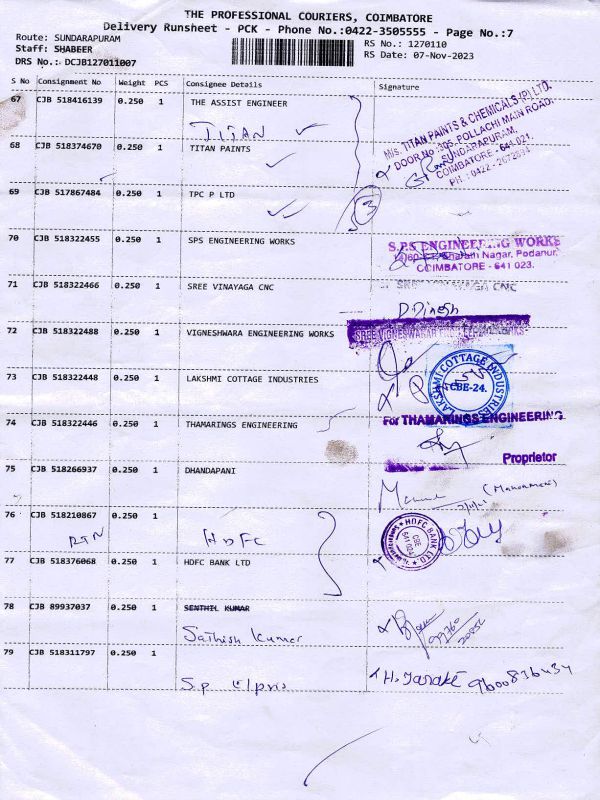 THE PROFESSIONAL COURIERS, COIMBATORE
Delivery Runsheet - PCK - Phone No.:0422-3505555 - Page No.:7
Route: SUNDARAPURAM
RS No.: 1270110
Staff: SHABEER
RS Date: 07-Nov-2023
DRS No.: DCJB127011007
S No Consignment No Weight PCS Consignee Details Signature
67 CJB 518416139 0.250 1 THE ASSIST ENGINEER
TITAN
M/s. TITAN PAINTS & CHEMICALS (P) LTD.
DOOR No : 305, POLLACHI MAIN ROAD,
SUNDARAPURAM,
COIMBATORE - 641 021.
68 CJB 518374670 0.250 1 TITAN PAINTS
69 CJB 517867484 0.250 1 TPC P LTD
3
70 CJB 518322455 0.250 1 SPS ENGINEERING WORKS
S.P.S ENGINEERING WORKS
Nagar, Podanur,
COIMBATORE - 641 023.
71 CJB 518322466 0.250 1 SREE VINAYAGA CNC
D. Dinesh
72 CJB 518322488 0.250 1 VIGNESHWARA ENGINEERING WORKS
73 CJB 518322448 0.250 1 LAKSHMI COTTAGE INDUSTRIES
LAKSHMI COTTAGE INDUSTRIES
CBE-24.
74 CJB 518322446 0.250 1 THAMARINGS ENGINEERING
For THAMARINGS ENGINEERING
Proprietor
75 CJB 518266937 0.250 1 DHANDAPANI
76 CJB 518210867 0.250 1
RTN HDFC
HDFC BANK LTD.
CBE
641 024
77 CJB 518376068 0.250 1 HDFC BANK LTD
78 CJB 89937037 0.250 1 SENTHIL KUMAR
Sathish Kumar
79 CJB 518311797 0.250 1
S.P